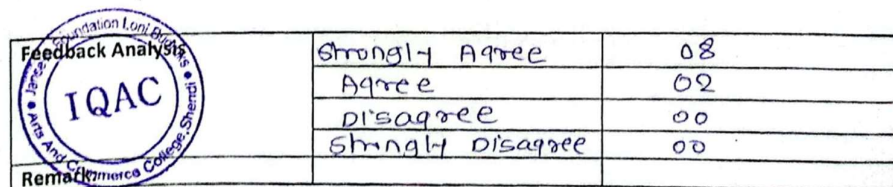 Feedback Analysis
Strongly Agree 08
Agree 02
Disagree 00
Strongly Disagree 00
Remark
IQAC
Foundation Loni Budruks
Arts And Commerce College, Shendi